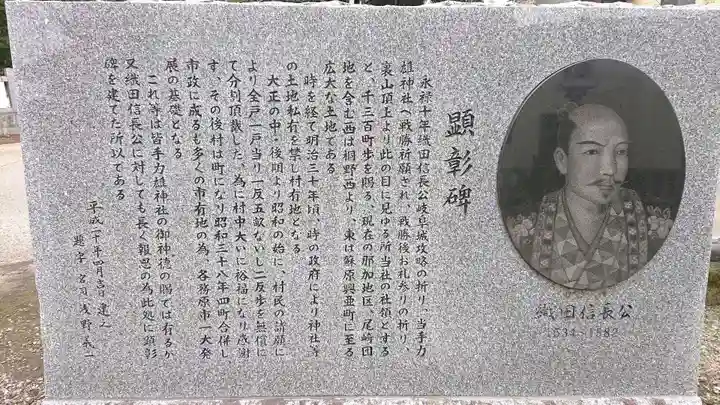 顕彰碑
永禄十年織田信長公岐阜城攻略の折り、当手力
雄神社へ戦勝祈願され、戦勝後お礼参りの折り、
裏山頂上より此の目に見ゆる所当社の社領とする
と、千三百町歩を賜る、現在の那加地区、尾崎団
地を含む西は桐野西より、東は蘇原興亜町に至る
広大な土地である
時を経て明治三十年頃、時の政府により神社等
の土地私有を禁じ村有地となる
大正の中・後期より昭和の始に、村民の請願に
より全戸一戸当り一反五畝ないし二反歩を無償に
て分割頂戴した、為に村中大いに裕福になり感謝
す、その後村は町になり昭和三十八年四町合併し
市政に成るも多くの市有地の為、各務原市一大発
展の基礎となる
これ等は皆手力雄神社の御神徳の賜では有るが
又織田信長公に対しても長く報恩の為此処に顕彰
碑を建てた所以である
平成二十年四月吉日建之
題字 宮司 浅野
織田信長公
1534-1582